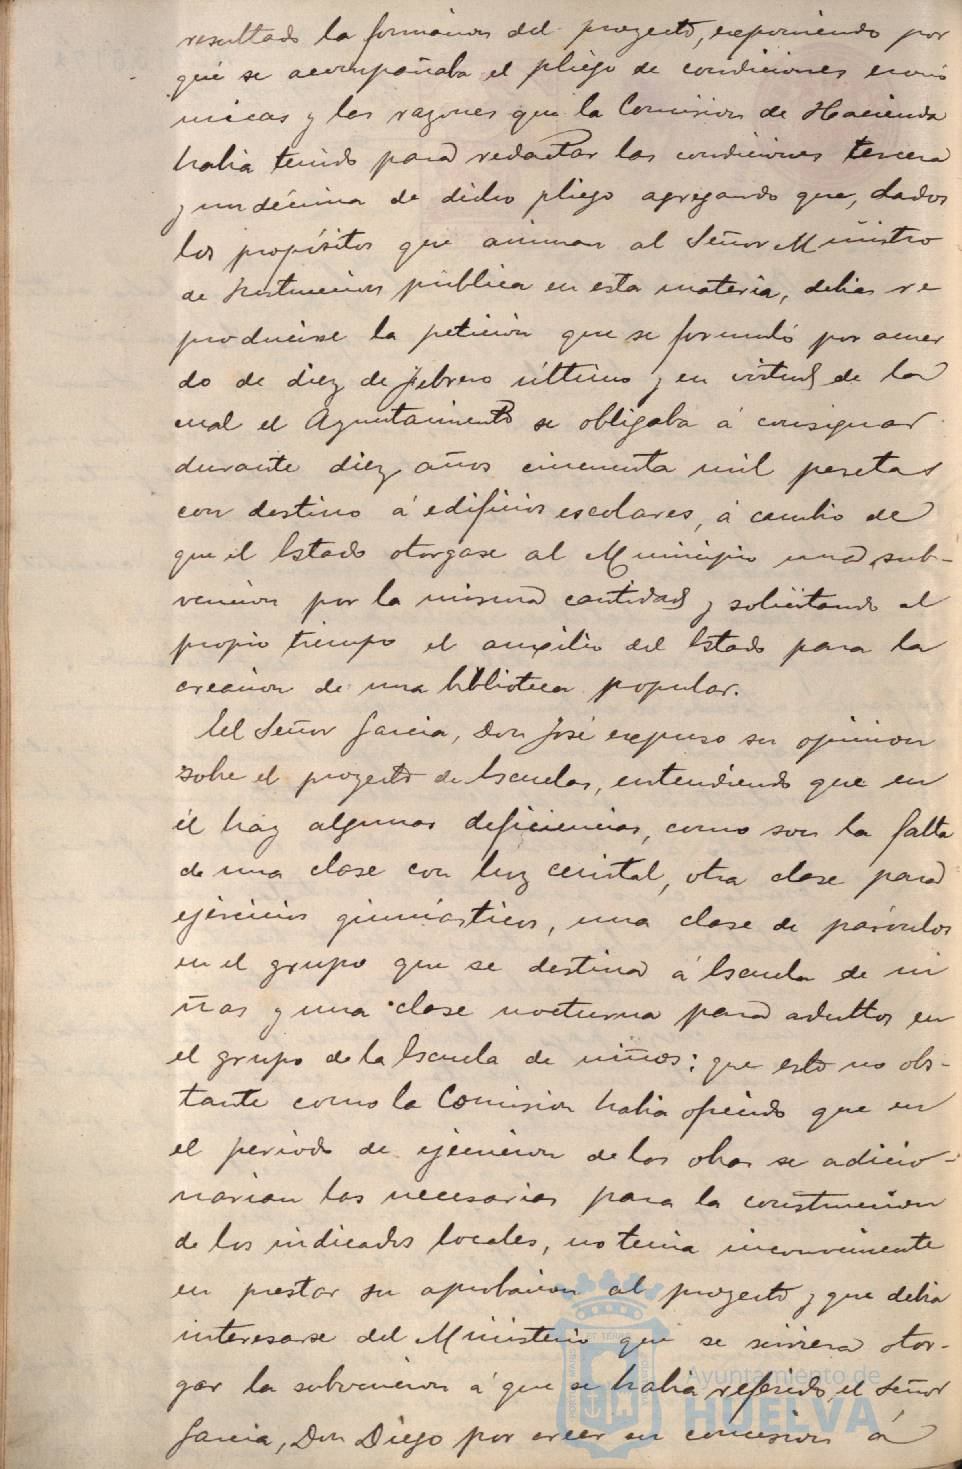 resultado la formacion del proyecto, exponiendo por
qué se acompañaba el pliego de condiciones econó
micas y las razones que la Comision de Hacienda
habia tenido para redactar las condiciones tercera
y undécima de dicho pliego agregando que, dados
los propósitos que animan al Señor Ministro
de Instruccion pública en esta materia, debia re
producirse la peticion que se formuló por acuer
do de diez de febrero último y en virtud de la
cual el Ayuntamiento se obligaba á consignar
durante diez años cincuenta mil pesetas
con destino á edificios escolares, á cambio de
que el Estado otorgase al Municipio una sub-
vencion por la misma cantidad y solicitando al
propio tiempo el auxilio del Estado para la
creacion de una biblioteca popular.
El Señor Garcia, Don José expuso su opinion
sobre el proyecto de Escuelas, entendiendo que en
él hay algunas deficiencias, como son la falta
de una clase con luz cenital, otra clase para
ejercicios gimnásticos, una clase de párvulos
en el grupo que se destina á Escuela de ni
ñas y una clase nocturna para adultos en
el grupo de la Escuela de niños: que esto no obs-
tante como la Comision habia ofrecido que en
el periodo de ejecucion de las obras se adicio-
narian las necesarias para la construccion
de los indicados locales, no tenia inconveniente
en prestar su aprobacion al proyecto y que debia
interesarse del Ministerio que se sirviera otor-
gar la subvencion á que se habia referido el Señor
Garcia, Don Diego por creer su concesion á
Ayuntamiento de
HUELVA